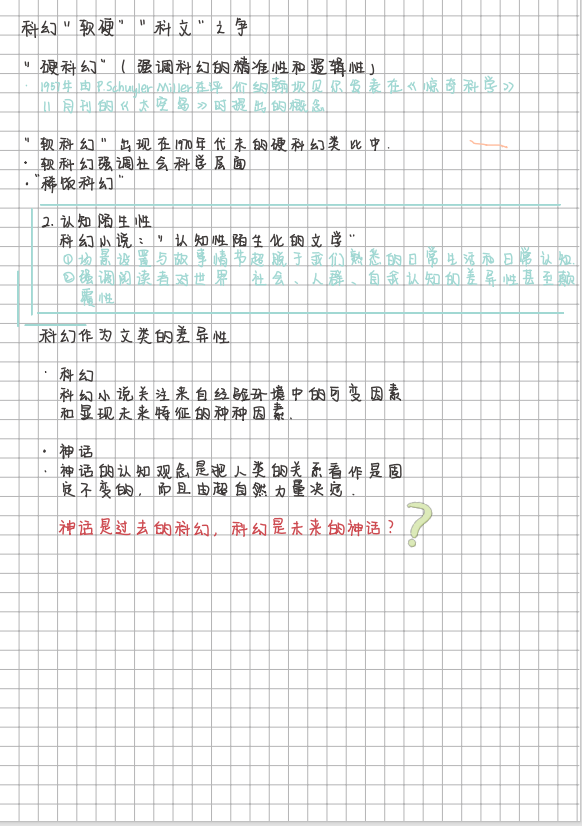 科幻"软硬""科文"之争
"硬科幻"(强调科幻的精准性和逻辑性)
· 1957年由P.Schuyler Miller在评价约翰坎贝尔发表在《惊奇科学》
11月刊的《太空岛》时提出的概念
"软科幻"出现在1970年代末的硬科幻类比中.
· 软科幻强调社会科学层面
· "稀饭科幻"
2. 认知陌生性
科幻小说:"认知性陌生化的文学"
①场景设置与故事情节超脱于我们熟悉的日常生活和日常认知
②强调阅读者对世界 社会、人群、自我认知的差异性甚至颠
覆性
科幻作为文类的差异性
· 科幻
科幻小说关注来自经验环境中的可变因素
和显现未来特征的种种因素.
· 神话
· 神话的认知观念是把人类的关系看作是固
定不变的, 而且由超自然力量决定.
神话是过去的科幻, 科幻是未来的神话?
?